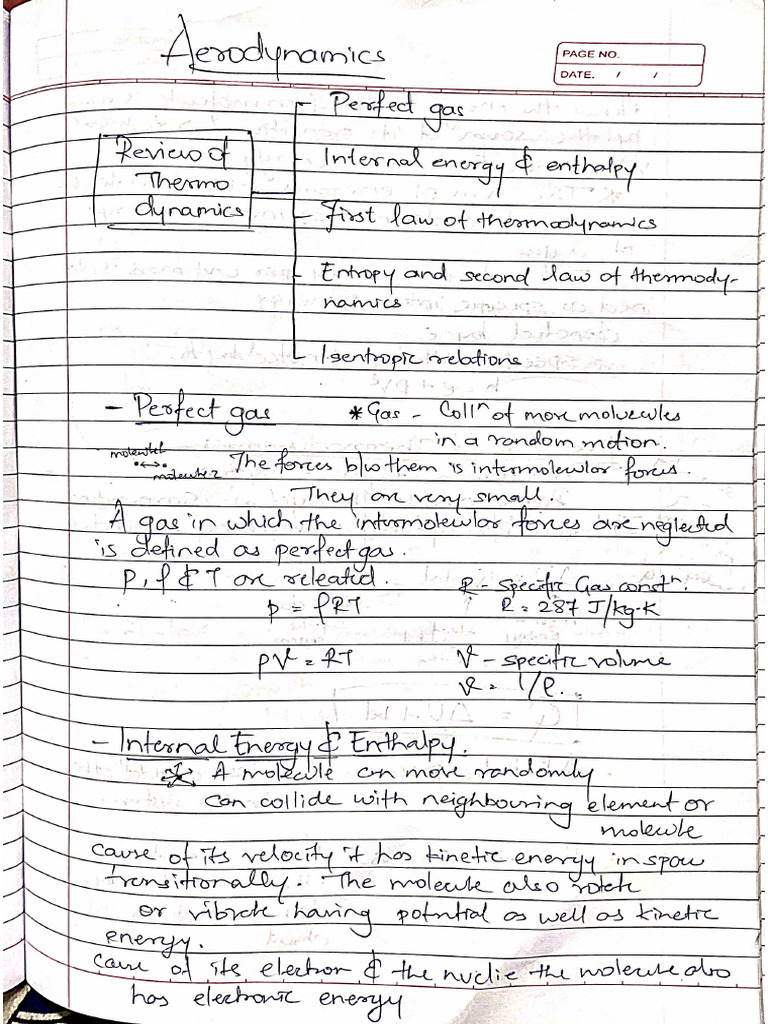 Aerodynamics
PAGE NO.
DATE. / /
Review of
Thermo
dynamics
- Perfect gas
- Internal energy & enthalpy
- First law of thermodynamics
- Entropy and second law of thermody-
namics
- Isentropic relations
- Perfect gas * Gas - Collⁿ of more molecules
in a random motion.
molecule1
molecule2 The forces b/w them is intermolecular forces.
They are very small.
A gas in which the intermolecular forces are neglected
is defined as perfect gas.
P, ρ & T are releated. R - Specific Gas constⁿ.
p = ρRT R = 287 J/kg·K
pv = RT v - specific volume
v = 1/ρ.
- Internal Energy & Enthalpy.
A molecule can move randomly
can collide with neighbouring element or
molecule
cause of its velocity it has kinetic energy in space
transitionally. The molecule also rotate
or vibrate having potntial as well as kinetic
energy.
cause of its electron & the nuclie the molecule also
has electronic energy